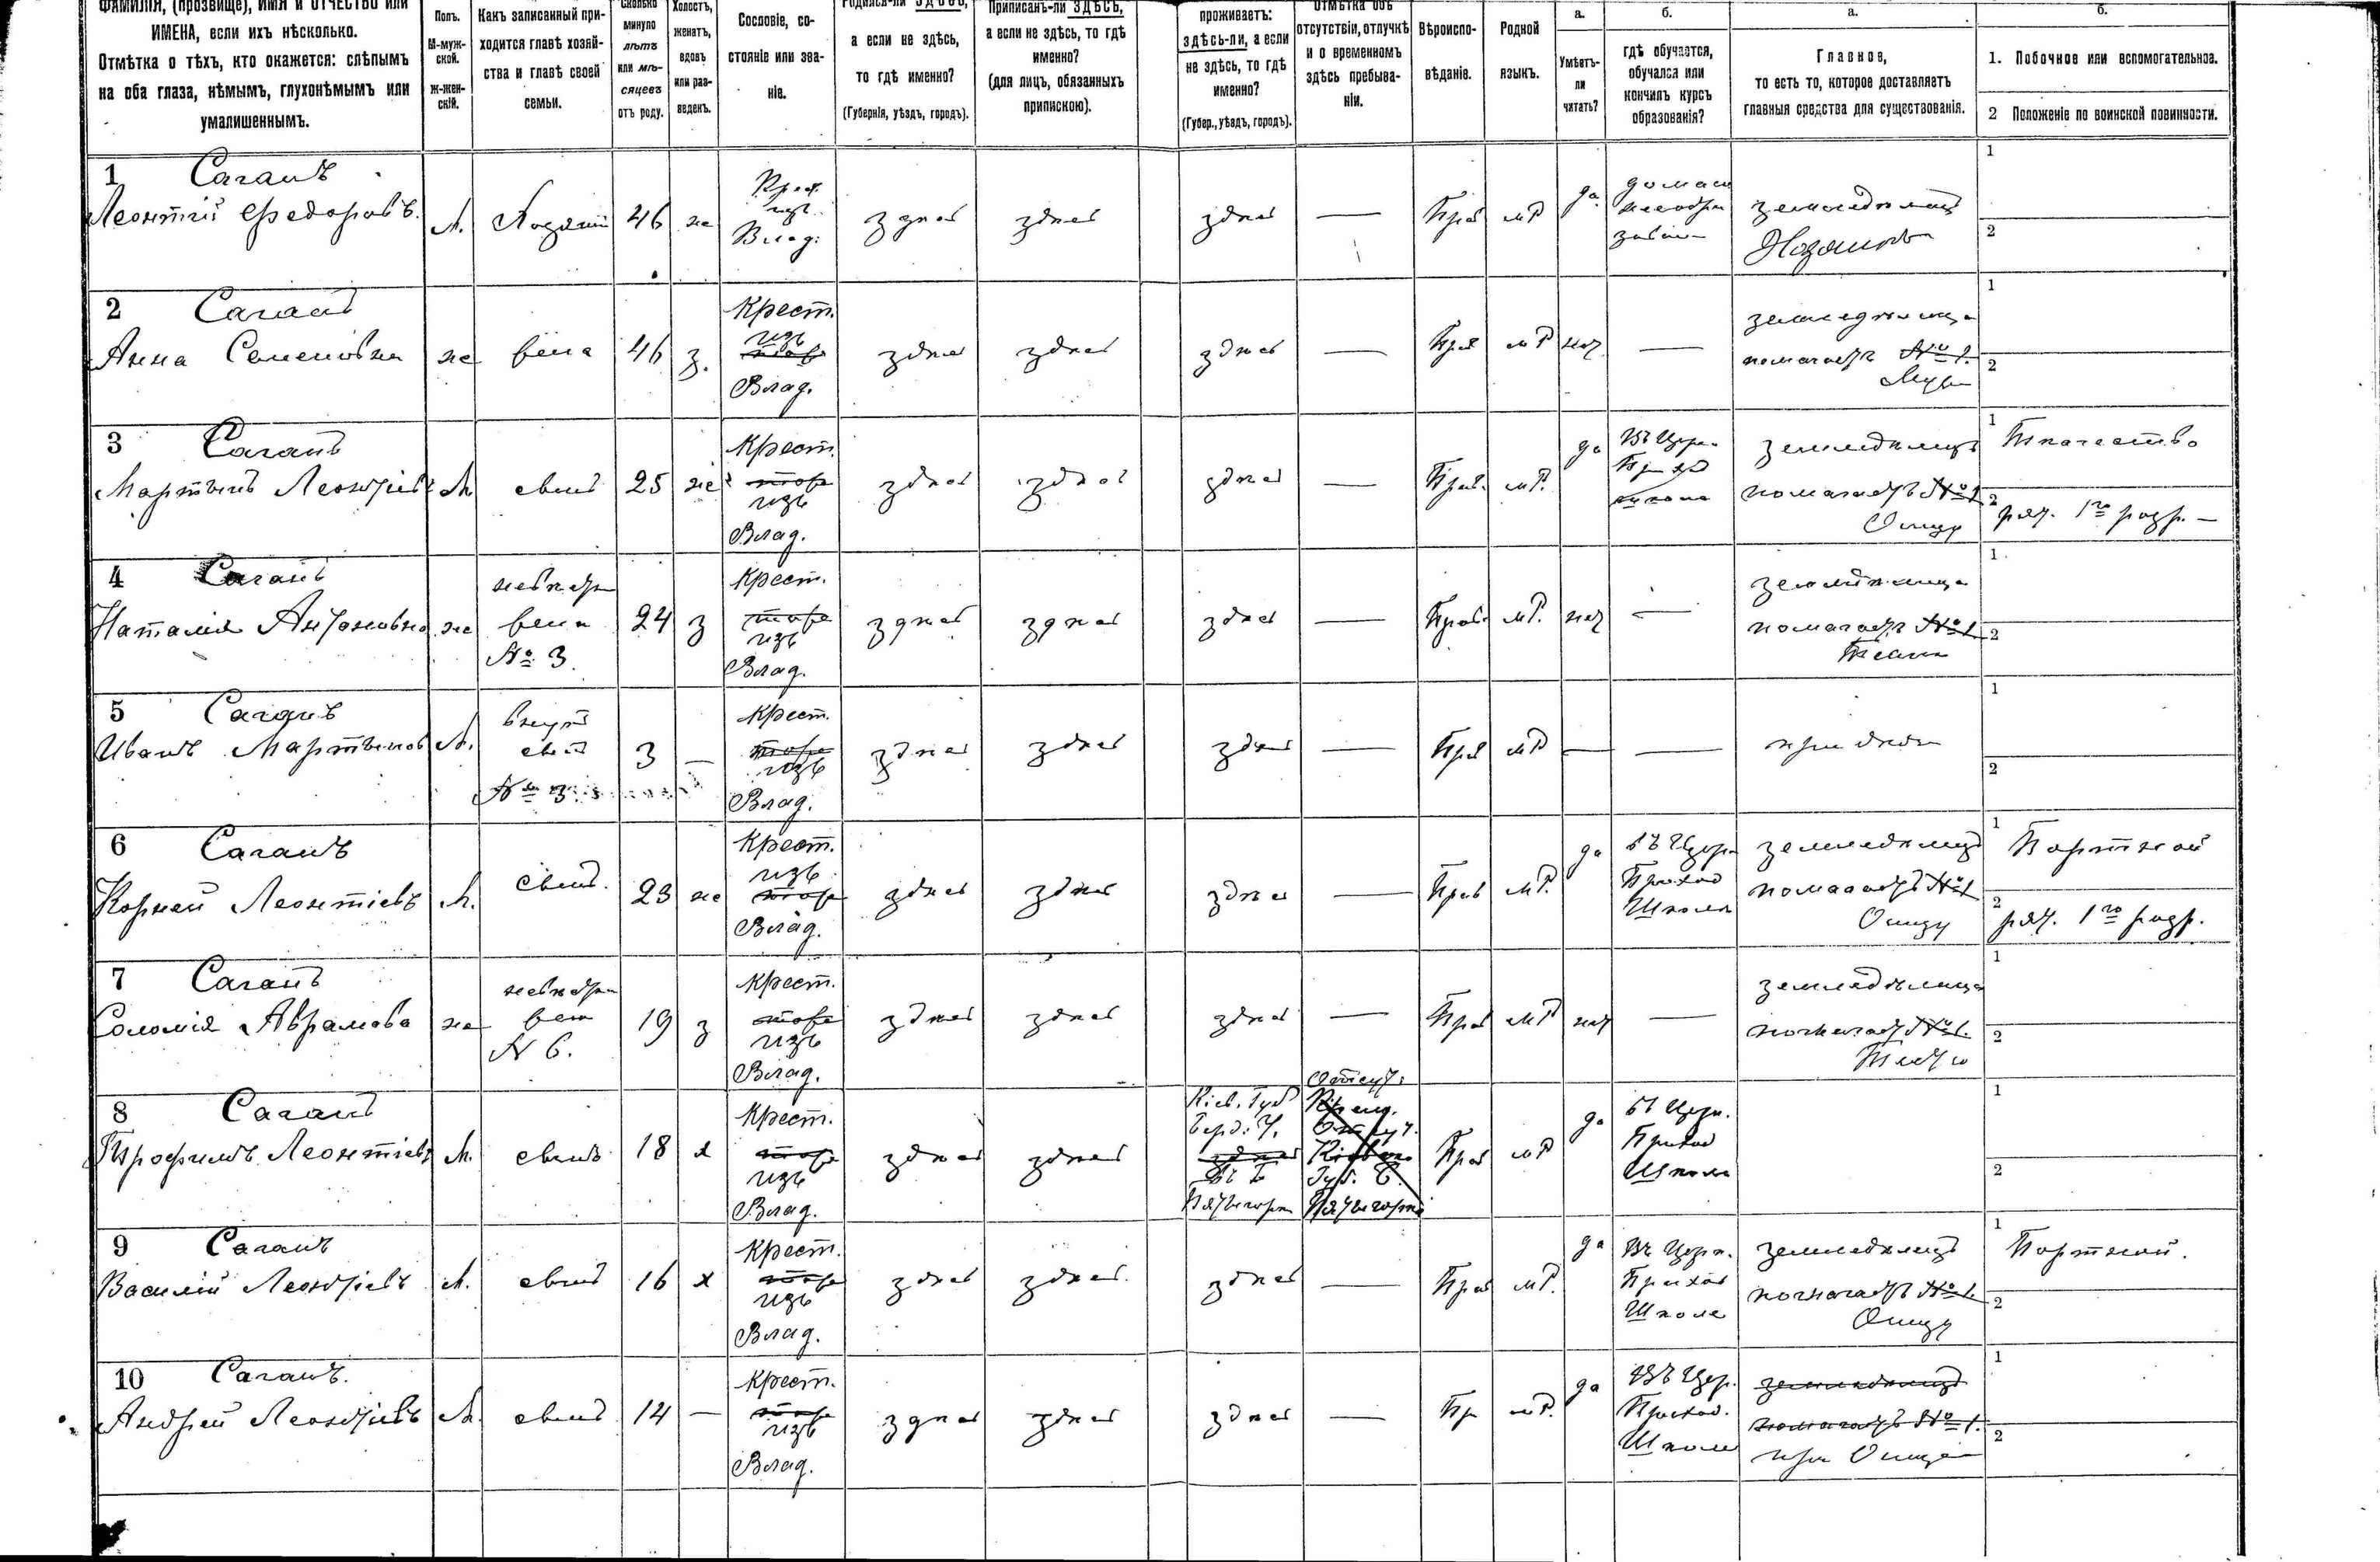 ФАМИЛІЯ, (прозвище), ИМЯ и ОТЧЕСТВО или
ИМЕНА, если ихъ нѣсколько.
Отмѣтка о тѣхъ, кто окажется: слѣпымъ
на оба глаза, нѣмымъ, глухонѣмымъ или
умалишеннымъ.
Полъ.
М-муж-
ской.
Ж-жен-
скій.
Какъ записанный при-
ходится главѣ хозяй-
ства и главѣ своей
семьи.
Сколько
минуло
лѣтъ
или мѣ-
сяцевъ
отъ роду.
Холостъ,
женатъ,
вдовъ
или раз-
веденъ.
Сословіе, со-
стояніе или зва-
ніе.
Родился-ли ЗДѢСЬ,
а если не здѣсь,
то гдѣ именно?
(Губернія, уѣздъ, городъ).
Приписанъ-ли ЗДѢСЬ,
а если не здѣсь, то гдѣ
именно?
(для лицъ, обязанныхъ
припискою).
проживаетъ:
здѣсь-ли, а если
не здѣсь, то гдѣ
именно?
(Губер., уѣздъ, городъ).
Отмѣтка объ
отсутствіи, отлучкѣ
и о временномъ
здѣсь пребыва-
ніи.
Вѣроиспо-
вѣданіе.
Родной
языкъ.
а.
Умѣетъ-
ли
читать?
б.
гдѣ обучается,
обучался или
кончилъ курсъ
образованія?
а.
Главное,
то есть то, которое доставляетъ
главныя средства для существованія.
б.
1. Побочное или вспомогательное.
2 Положеніе по воинской повинности.
1 Саганъ
Леонтій Федоровъ.
М. Хозяин 46 же Крест. изъ Влад. здѣсь здѣсь здѣсь — Прав мР да
земледѣлецъ
Хозяинъ
1
2
2 Саганъ
Анна Семеновна
же жена 46 з. Крест. изъ Влад. здѣсь здѣсь здѣсь — Прав мР нет —
земледѣлица
помогаетъ №1.
Мужу
1
2
3 Саганъ
Мартынъ Леонтіевъ
М сынъ 25 же Крест. изъ Влад. здѣсь здѣсь здѣсь — Прав. мР. да
Въ Церк.
Приход
школе
земледѣлецъ
помогаетъ №1
Отцу
1 Ткачество
2 рат. 1го разр. —
4 Саганъ
Наталія Антоновна
же
невѣстка
жена
№ 3
24 з Крест. изъ Влад. здѣсь здѣсь здѣсь — Прав. мР. нет —
помогаетъ №1
1
2
5 Саганъ
Иванъ Мартынов
М.
внукъ
сынъ
№ 3
3 — Крест. изъ Влад. здѣсь здѣсь здѣсь — Прав мР — —
1
2
6 Саганъ
Корней Леонтіевъ
М. сынъ. 23 же Крест. изъ Влад. здѣсь здѣсь здѣсь — Прав мР. да
въ Церк
Приход
Школе
земледѣлецъ
помогаетъ №1
Отцу
1 Портной
2 рат. 1го разр.
7 Саганъ
Соломія Аврамова
же
невѣстка
жена
№ 6.
19 з Крест. изъ Влад. здѣсь здѣсь здѣсь — Прав мР нет —
земледѣлица
помогаетъ №1.
1
2
8 Саганъ
Трофимъ Леонтіевъ
М. сынъ 18 х Крест. изъ Влад. здѣсь здѣсь
Кіев. Губ
Берд. У.
Отсут:
Прав мР да
въ Церк.
Приход
Школе
1
2
9 Саганъ
Василій Леонтіевъ
М. сынъ 16 х Крест. изъ Влад. здѣсь здѣсь здѣсь — Прав мР. да
Въ Церк.
Приход
Школе
земледѣлецъ
помогаетъ №1
Отцу
1 Портной.
2
10 Саганъ.
Андрей Леонтіевъ
М. сынъ 14 — Крест. изъ Влад. здѣсь здѣсь здѣсь — Пр мР. да
Въ Цер.
Приход.
Школе
земледѣлецъ
помогаетъ №1.
при Отце
1
2